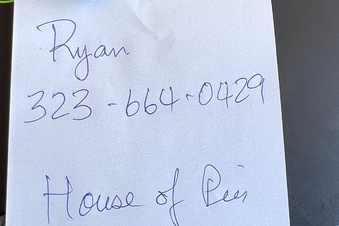 Ryan
323-664-0429
House of Pies